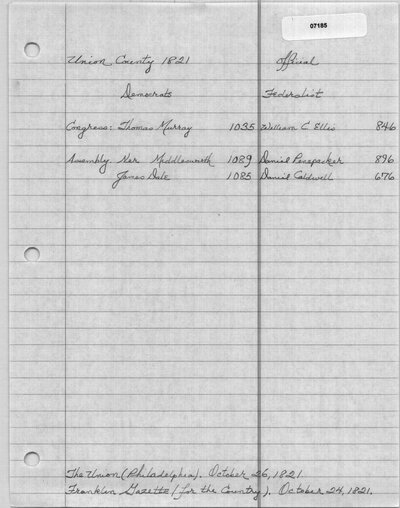 07185
Union County 1821 Official
Democrats Federalist
Congress: Thomas Murray 1035 William C Ellis 846
Assembly Ner Middlesworth 1089 Daniel Penepacker 896
James Dale 1085 Daniel Caldwell 676
The Union (Philadelphia). October 26, 1821
Franklin Gazette (for the Country). October 24, 1821.